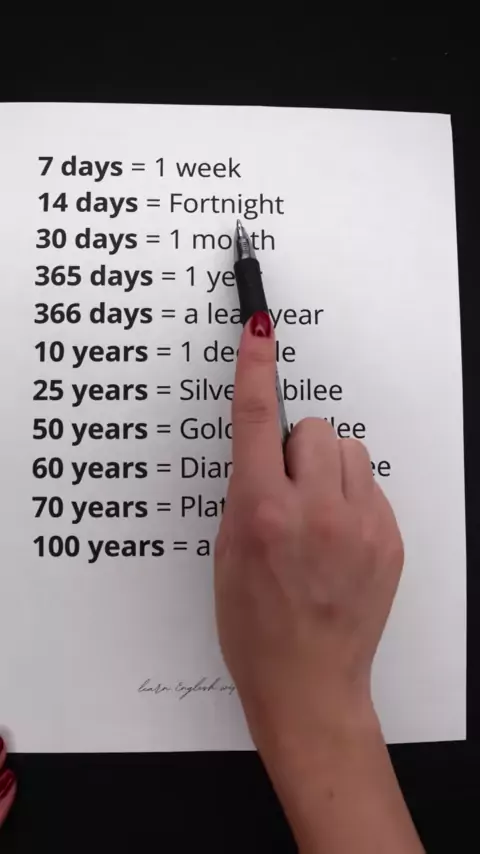 7 days = 1 week
14 days = Fortnight
30 days = 1 month
365 days = 1 year
366 days = a leap year
10 years = 1 decade
25 years = Silver Jubilee
50 years = Golden Jubilee
60 years = Diamond Jubilee
70 years =
100 years = a
learn English